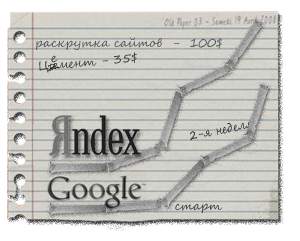 Old Paper 03 - Samedi 19 Avril 2008
раскрутка сайтов - 100$
Цемент - 35$
Яndex
2-я неделя
Google™
старт